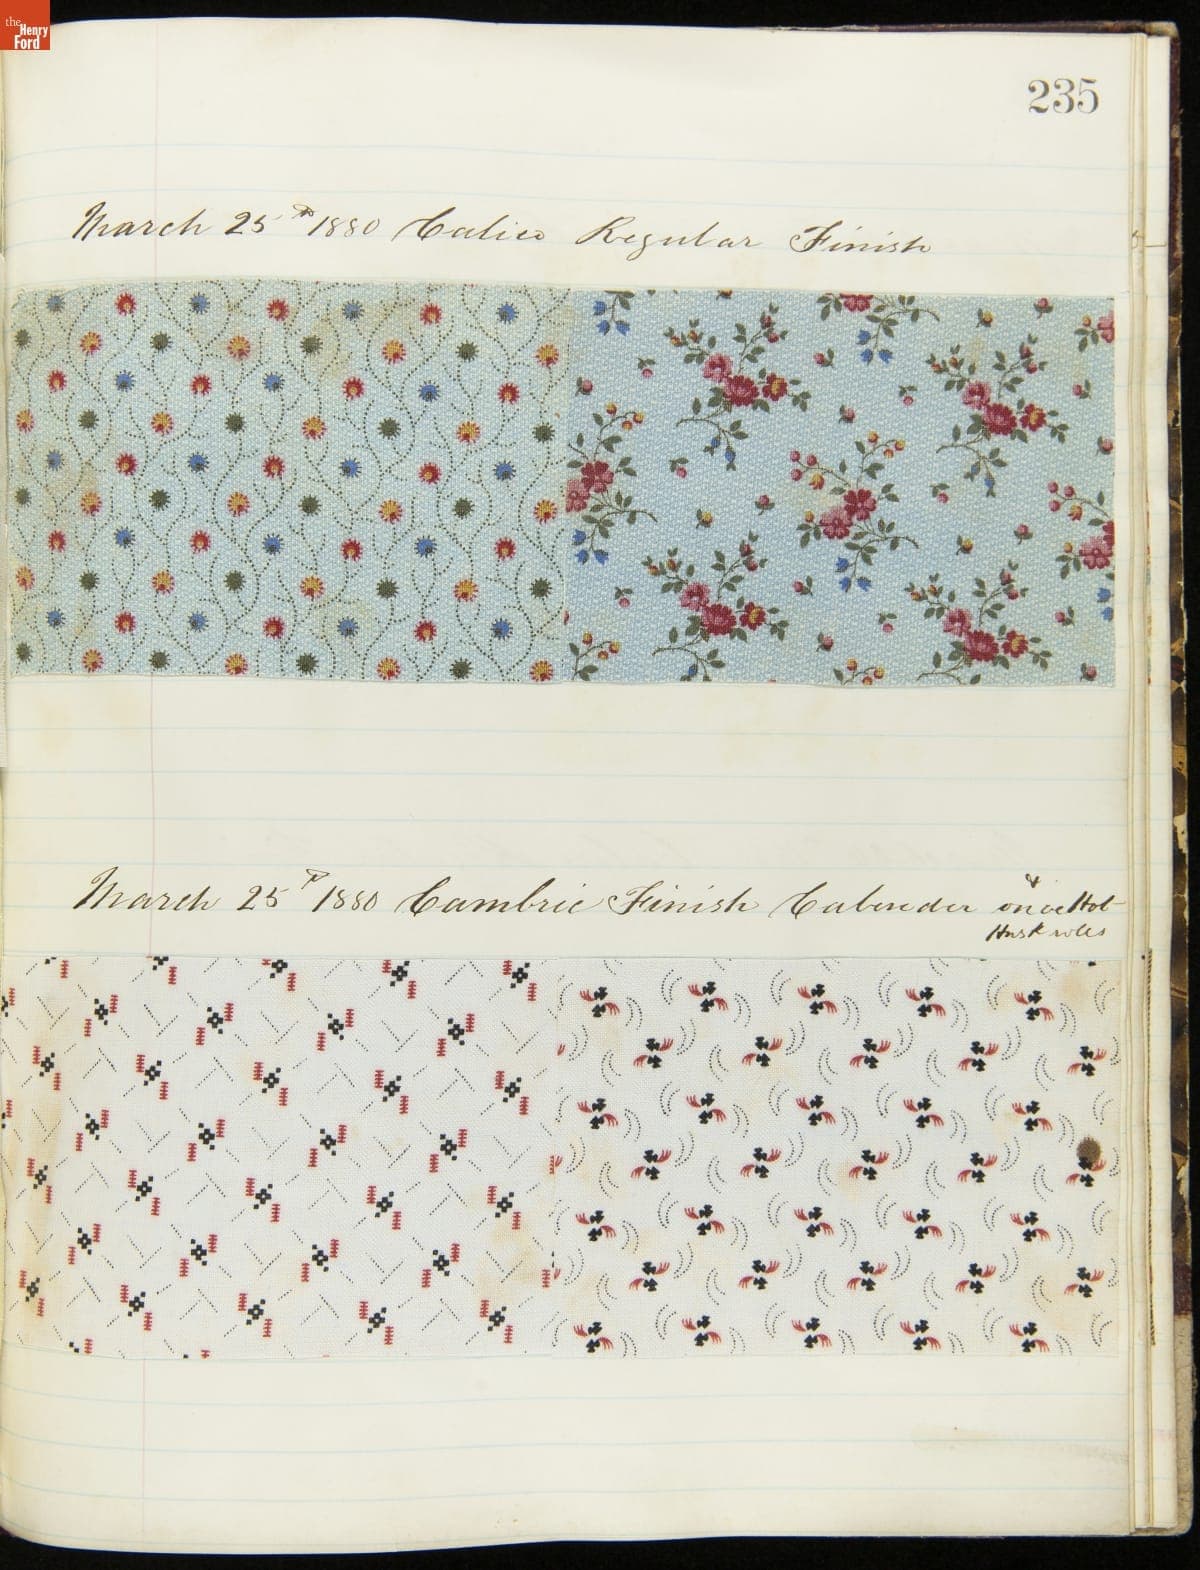 the
Henry
Ford
235
March 25th 1880 Calico Regular Finish
March 25th 1880 Cambric Finish Calender once Hot
Husk roles